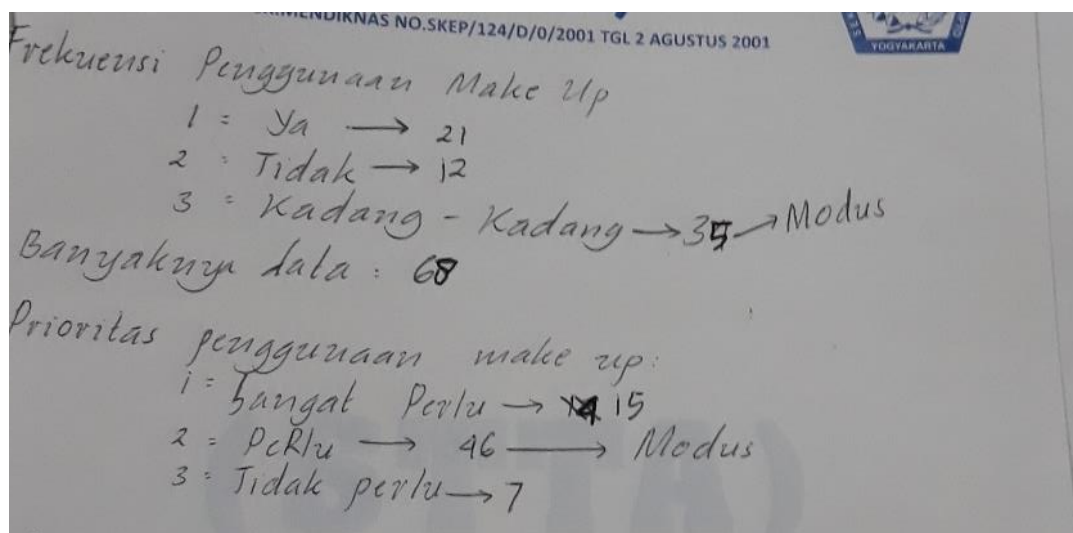 NO.SKEP/124/D/0/2001 TGL 2 AGUSTUS 2001
YOGYAKARTA
Frekuensi Penggunaan Make Up
1 = Ya → 21
2 = Tidak → 12
3 = Kadang - Kadang → 35 → Modus
Banyaknya data : 68
Prioritas penggunaan make up :
1 = Sangat Perlu → 15
2 = PeRlu → 46 → Modus
3 = Tidak perlu → 7
(STTA)